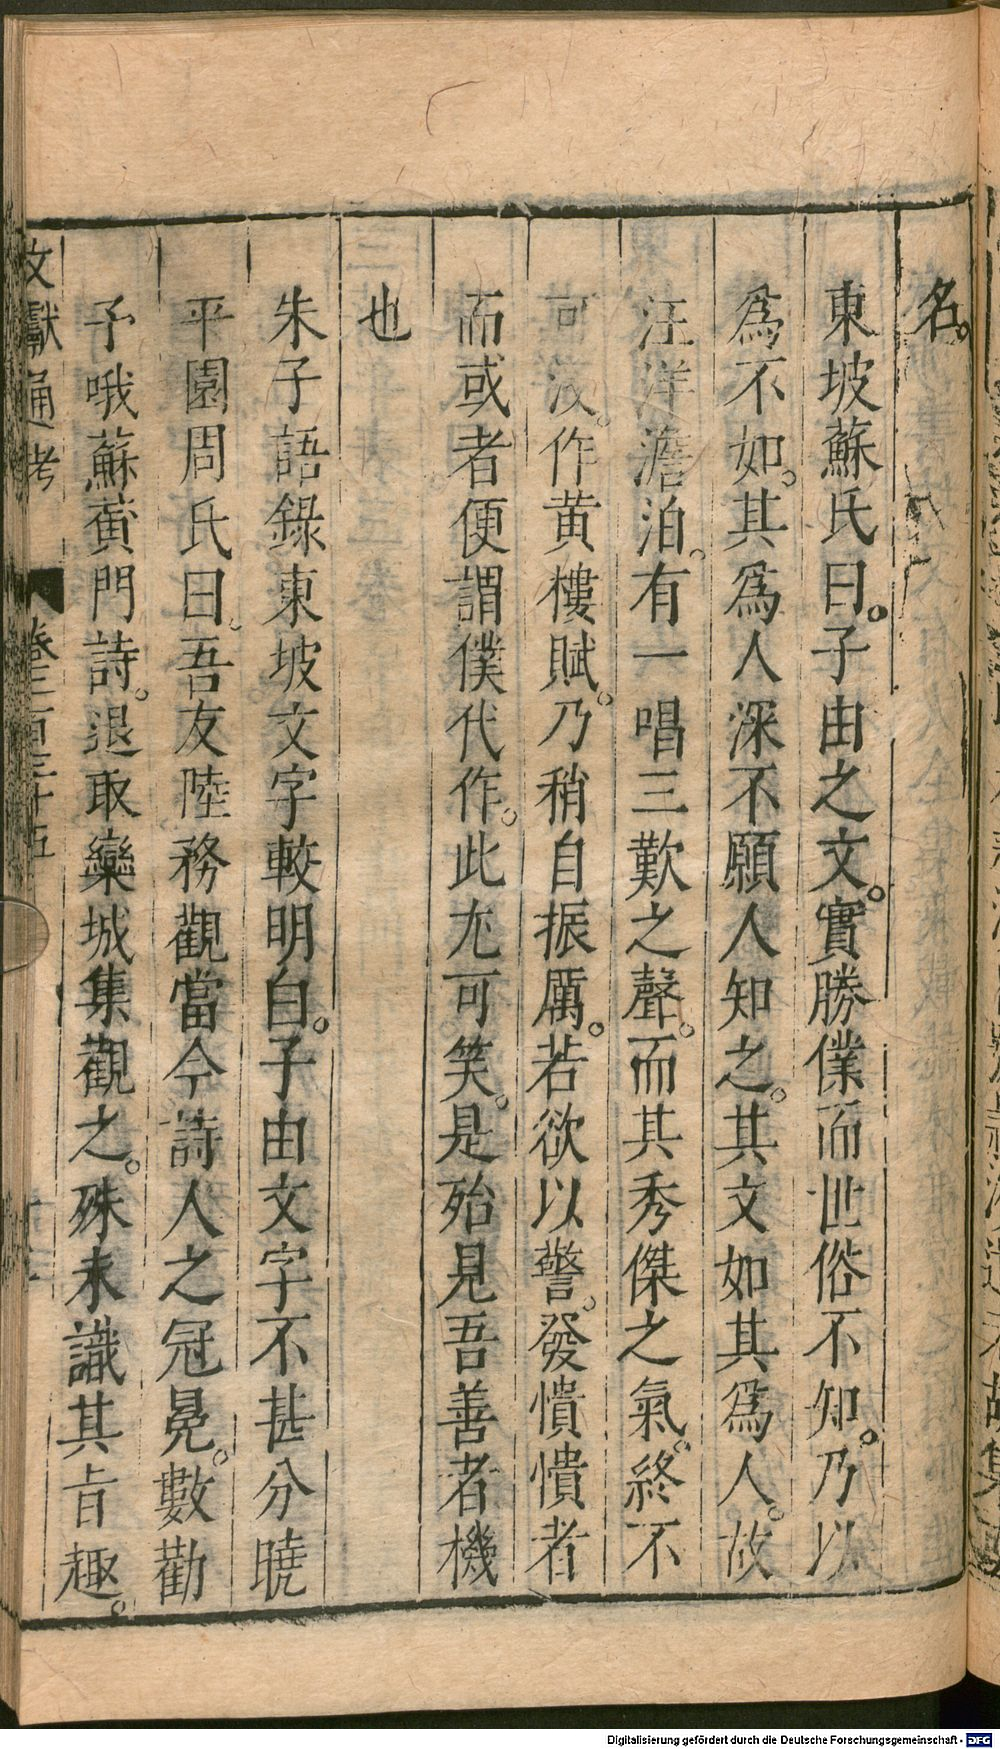 名。
東坡蘇氏曰。子由之文。實勝僕而世俗不知。乃以
爲不如。其爲人深不願人知之。其文如其爲人。故
汪洋澹泊。有一唱三歎之聲。而其秀傑之氣。終不
可沒。作黄樓賦。乃稍自振厲。若欲以警。發憒憒者
而或者便謂僕代作。此尤可笑。是殆見吾善者機
也
朱子語錄東坡文字較明白。子由文字不甚分曉
平園周氏曰。吾友陸務觀當今詩人之冠冕。數勸
予哦蘇黄門詩。退取欒城集觀之。殊未識其旨趣。
文獻通考 卷二百三十五
Digitalisierung gefördert durch die Deutsche Forschungsgemeinschaft - DFG